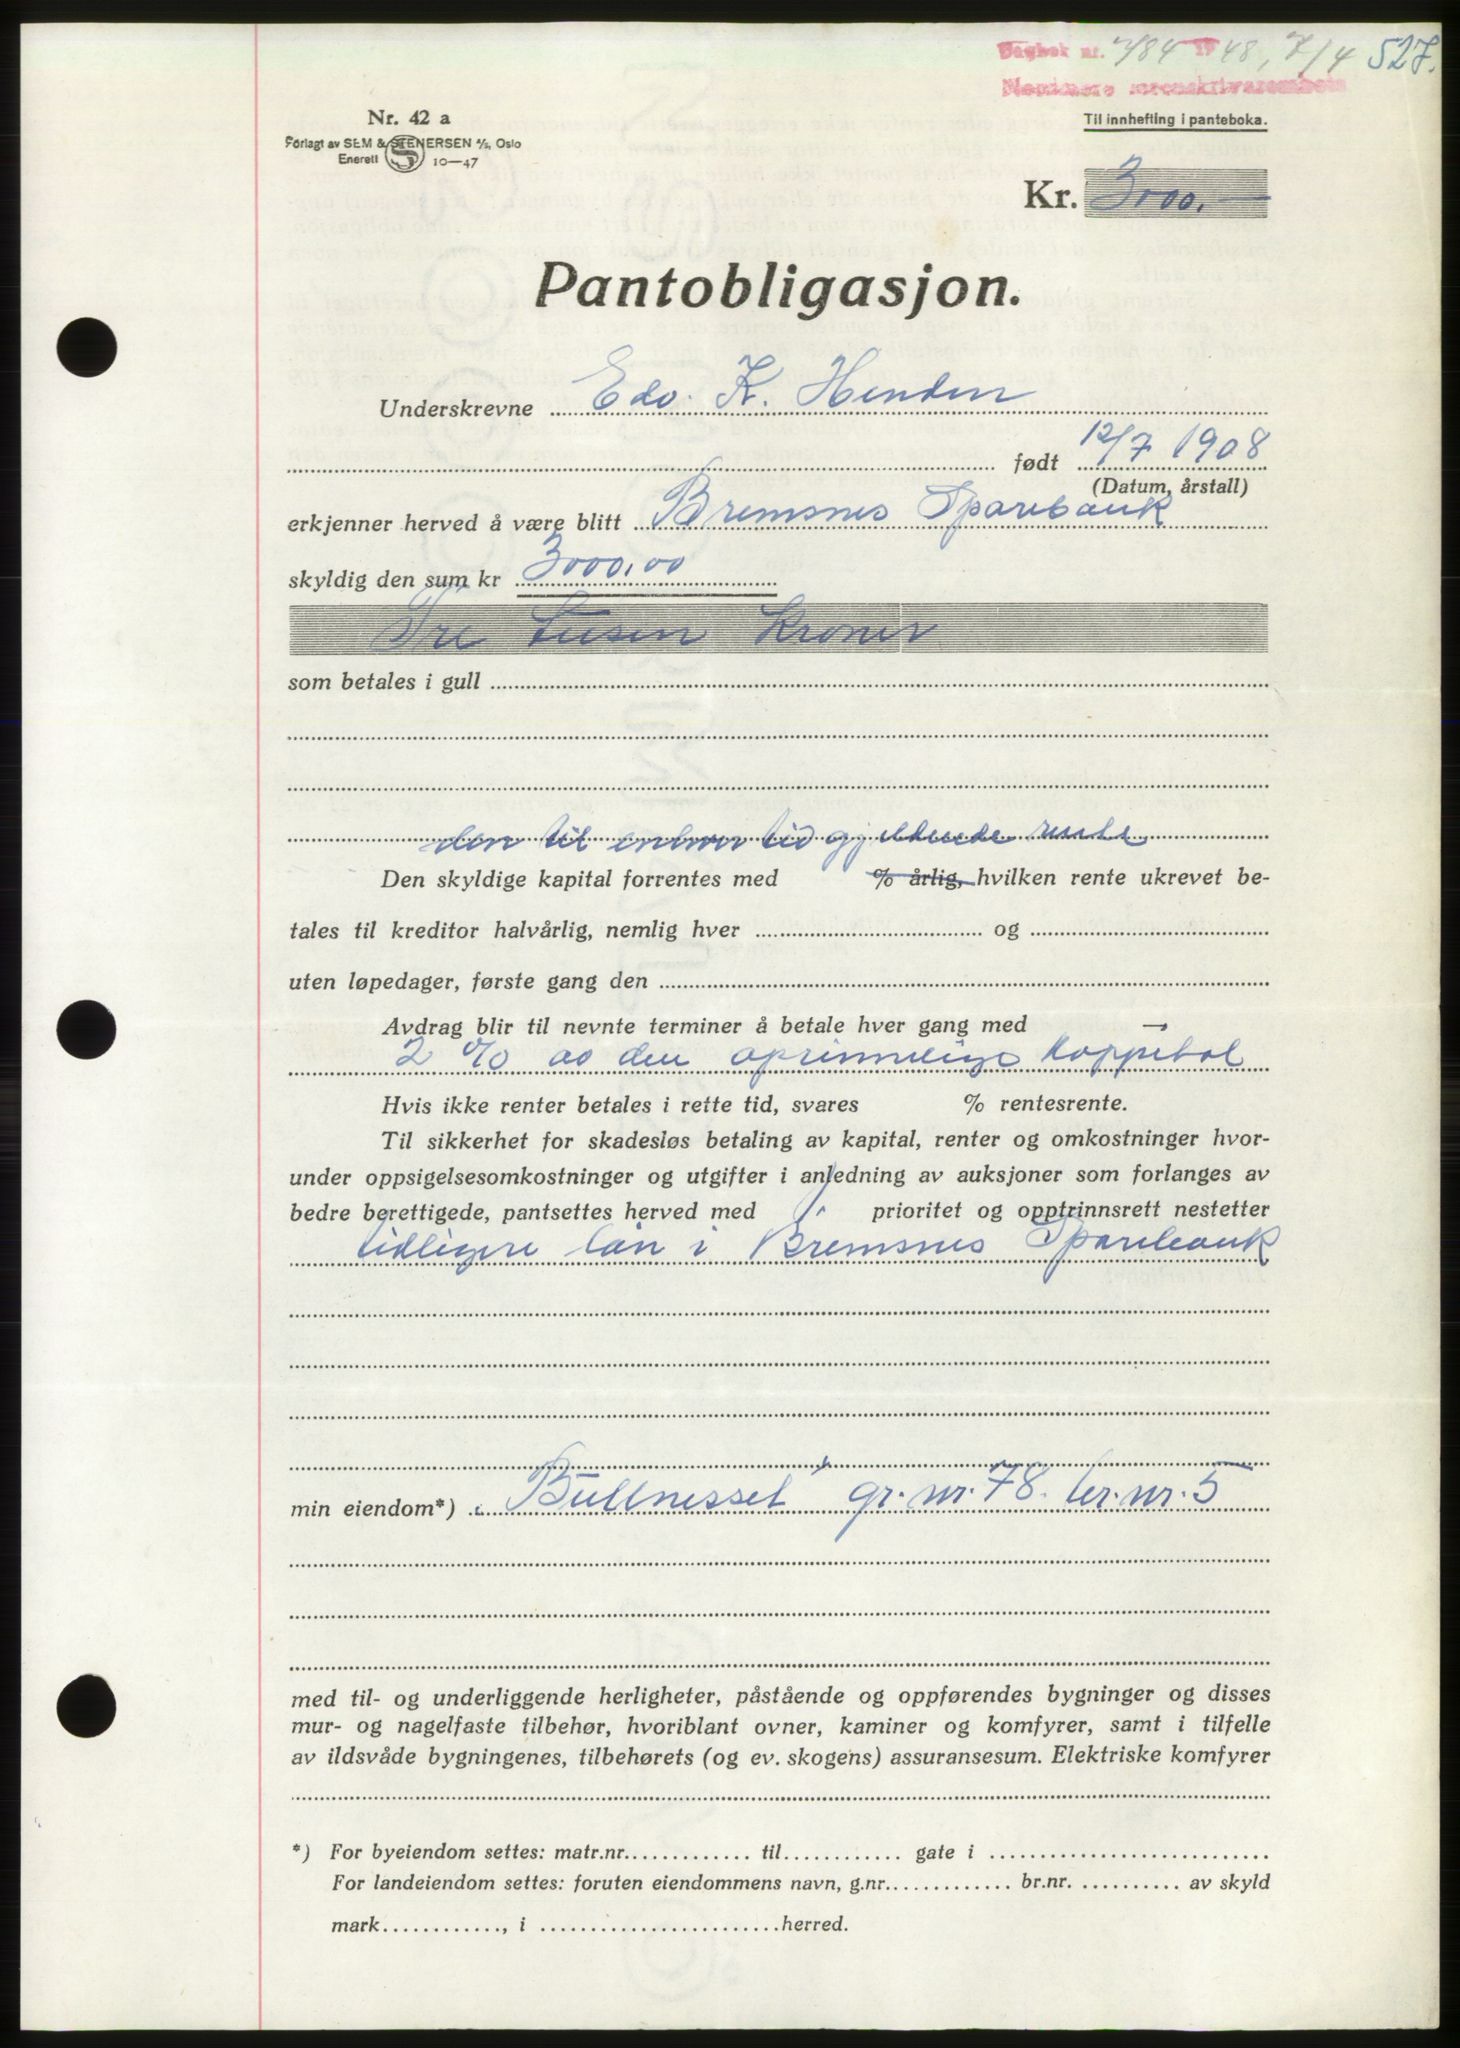 Dagbok nr. 784 1948, 7/4 527.
Nordmøre sorenskriverembete
Nr. 42 a
Forlagt av SEM & STENERSEN A/S, Oslo
Enerett 10—47
Til innhefting i panteboka.
Kr. 3000.—
Pantobligasjon.
Underskrevne Edv. K. Henden
født 12/7 1908
(Datum, årstall)
erkjenner herved å være blitt Bremsnes Sparebank
skyldig den sum kr 3000,00
Tre tusen kroner
som betales i gull
den til enhver tid gjeldende rente
Den skyldige kapital forrentes med % årlig, hvilken rente ukrevet be-
tales til kreditor halvårlig, nemlig hver og
uten løpedager, første gang den
Avdrag blir til nevnte terminer å betale hver gang med —
2 % av den oprinnelige kappital
Hvis ikke renter betales i rette tid, svares % rentesrente.
Til sikkerhet for skadesløs betaling av kapital, renter og omkostninger hvor-
under oppsigelsesomkostninger og utgifter i anledning av auksjoner som forlanges av
bedre berettigede, pantsettes herved med prioritet og opptrinnsrett nestetter
tidligere lån i Bremsnes Sparebank
min eiendom*) „Bullnesset" gr. nr. 78. br. nr. 5
med til- og underliggende herligheter, påstående og oppførendes bygninger og disses
mur- og nagelfaste tilbehør, hvoriblant ovner, kaminer og komfyrer, samt i tilfelle
av ildsvåde bygningenes, tilbehørets (og ev. skogens) assuransesum. Elektriske komfyrer
*) For byeiendom settes: matr.nr. til gate i
For landeiendom settes: foruten eiendommens navn, g.nr. br.nr. av skyld
mark , i herred.